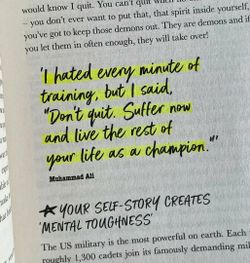 would know I quit. You can't quit when
– you don't ever want to put that, that spirit inside yourself,
you've got to keep those demons out. They are demons and if
you let them in often enough, they will take over!
'I hated every minute of
training, but I said,
"Don't quit. Suffer now
and live the rest of
your life as a champion."'
Muhammad Ali
★ YOUR SELF-STORY CREATES
'MENTAL TOUGHNESS'
The US military is the most powerful on earth. Each
roughly 1,300 cadets join its famously demanding